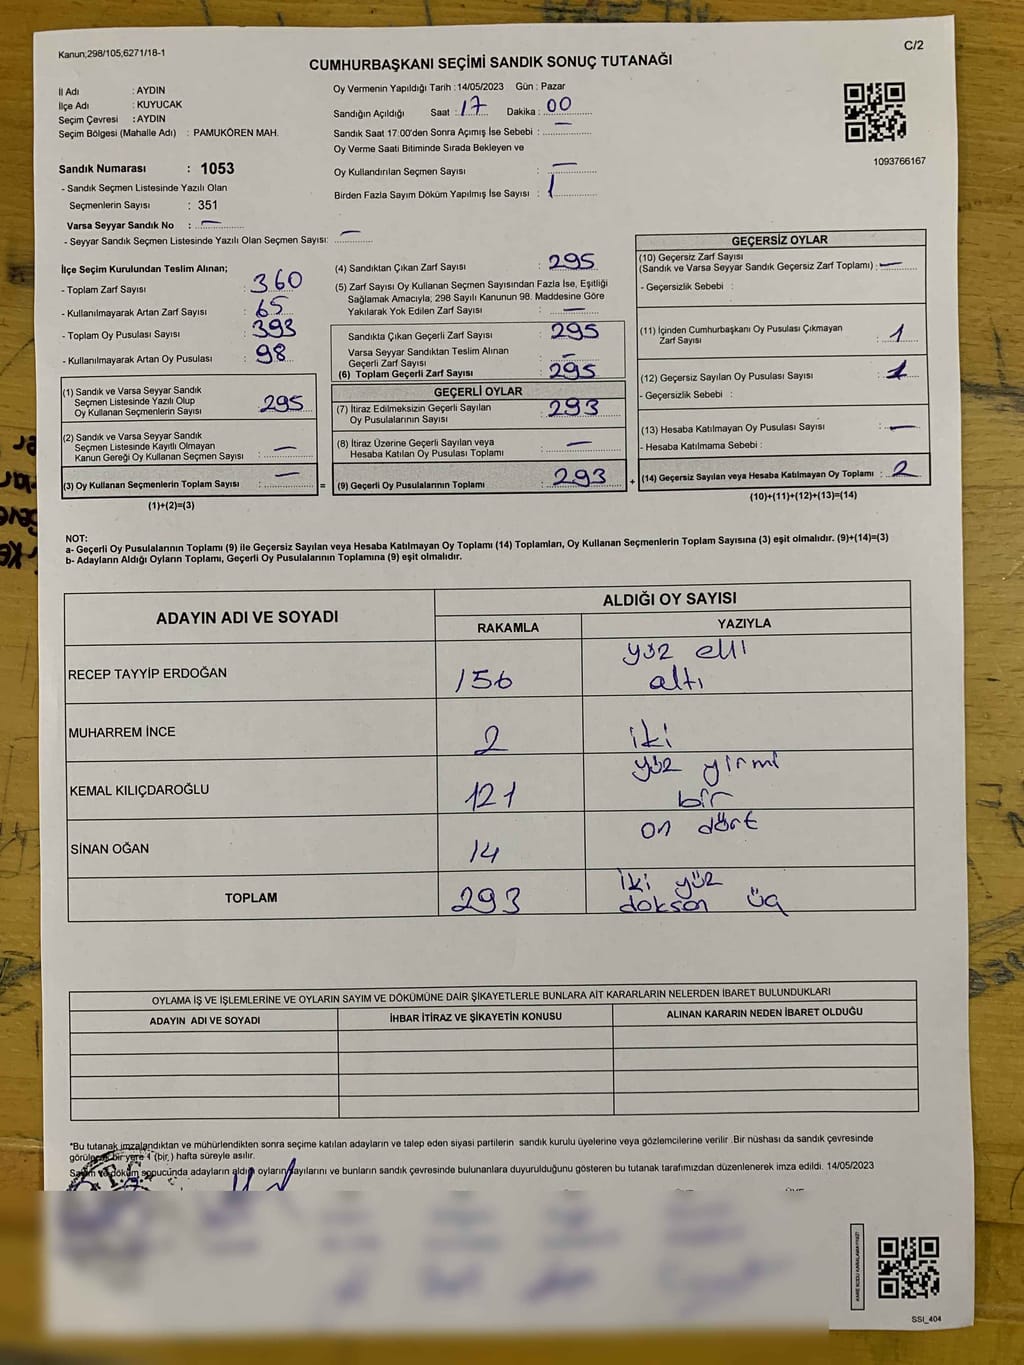 Kanun,298/105,6271/18-1
C/2
CUMHURBAŞKANI SEÇİMİ SANDIK SONUÇ TUTANAĞI
İl Adı : AYDIN
İlçe Adı : KUYUCAK
Seçim Çevresi : AYDIN
Seçim Bölgesi (Mahalle Adı) : PAMUKÖREN MAH.
Sandık Numarası : 1053
- Sandık Seçmen Listesinde Yazılı Olan
Seçmenlerin Sayısı : 351
Varsa Seyyar Sandık No : —
- Seyyar Sandık Seçmen Listesinde Yazılı Olan Seçmen Sayısı: —
Oy Vermenin Yapıldığı Tarih : 14/05/2023 Gün : Pazar
Sandığın Açıldığı Saat : 17 Dakika : 00
Sandık Saat 17.00'den Sonra Açımış İse Sebebi : —
Oy Verme Saati Bitiminde Sırada Bekleyen ve
Oy Kullandırılan Seçmen Sayısı : —
Birden Fazla Sayım Döküm Yapılmış İse Sayısı : 1
1093766167
İlçe Seçim Kurulundan Teslim Alınan;
- Toplam Zarf Sayısı : 360
- Kullanılmayarak Artan Zarf Sayısı : 65
- Toplam Oy Pusulası Sayısı : 393
- Kullanılmayarak Artan Oy Pusulası : 98
(1) Sandık ve Varsa Seyyar Sandık
Seçmen Listesinde Yazılı Olup
Oy Kullanan Seçmenlerin Sayısı : 295
(2) Sandık ve Varsa Seyyar Sandık
Seçmen Listesinde Kayıtlı Olmayan
Kanun Gereği Oy Kullanan Seçmen Sayısı : —
(3) Oy Kullanan Seçmenlerin Toplam Sayısı : — =
(1)+(2)=(3)
(4) Sandıktan Çıkan Zarf Sayısı : 295
(5) Zarf Sayısı Oy Kullanan Seçmen Sayısından Fazla İse, Eşitliği
Sağlamak Amacıyla; 298 Sayılı Kanunun 98. Maddesine Göre
Yakılarak Yok Edilen Zarf Sayısı : —
Sandıkta Çıkan Geçerli Zarf Sayısı : 295
Varsa Seyyar Sandıktan Teslim Alınan
Geçerli Zarf Sayısı : —
(6) Toplam Geçerli Zarf Sayısı : 295
GEÇERLİ OYLAR
(7) İtiraz Edilmeksizin Geçerli Sayılan
Oy Pusulalarının Sayısı : 293
(8) İtiraz Üzerine Geçerli Sayılan veya
Hesaba Katılan Oy Pusulası Toplamı : —
(9) Geçerli Oy Pusulalarının Toplamı : 293 +
GEÇERSİZ OYLAR
(10) Geçersiz Zarf Sayısı
(Sandık ve Varsa Seyyar Sandık Geçersiz Zarf Toplamı) : —
- Geçersizlik Sebebi :
(11) İçinden Cumhurbaşkanı Oy Pusulası Çıkmayan
Zarf Sayısı : 1
(12) Geçersiz Sayılan Oy Pusulası Sayısı : 1
- Geçersizlik Sebebi :
(13) Hesaba Katılmayan Oy Pusulası Sayısı : —
- Hesaba Katılmama Sebebi :
(14) Geçersiz Sayılan veya Hesaba Katılmayan Oy Toplamı : 2
(10)+(11)+(12)+(13)=(14)
NOT:
a- Geçerli Oy Pusulalarının Toplamı (9) ile Geçersiz Sayılan veya Hesaba Katılmayan Oy Toplamı (14) Toplamları, Oy Kullanan Seçmenlerin Toplam Sayısına (3) eşit olmalıdır. (9)+(14)=(3)
b- Adayların Aldığı Oyların Toplamı, Geçerli Oy Pusulalarının Toplamına (9) eşit olmalıdır.
ADAYIN ADI VE SOYADI
ALDIĞI OY SAYISI
RAKAMLA YAZIYLA
RECEP TAYYİP ERDOĞAN 156 yüz elli altı
MUHARREM İNCE 2 iki
KEMAL KILIÇDAROĞLU 121 yüz yirmi bir
SİNAN OĞAN 14 on dört
TOPLAM 293 iki yüz dokson üç
OYLAMA İŞ VE İŞLEMLERİNE VE OYLARIN SAYIM VE DÖKÜMÜNE DAİR ŞİKAYETLERLE BUNLARA AİT KARARLARIN NELERDEN İBARET BULUNDUKLARI
ADAYIN ADI VE SOYADI İHBAR İTİRAZ VE ŞİKAYETİN KONUSU ALINAN KARARIN NEDEN İBARET OLDUĞU
*Bu tutanak imzalandıktan ve mühürlendikten sonra seçime katılan adayların ve talep eden siyasi partilerin sandık kurulu üyelerine veya gözlemcilerine verilir .Bir nüshası da sandık çevresinde
görülecek bir yere 1 (bir,) hafta süreyle asılır.
Sayım ve döküm sonucunda adayların aldığı oyların sayılarını ve bunların sandık çevresinde bulunanlara duyurulduğunu gösteren bu tutanak tarafımızdan düzenlenerek imza edildi. 14/05/2023
SSI_404